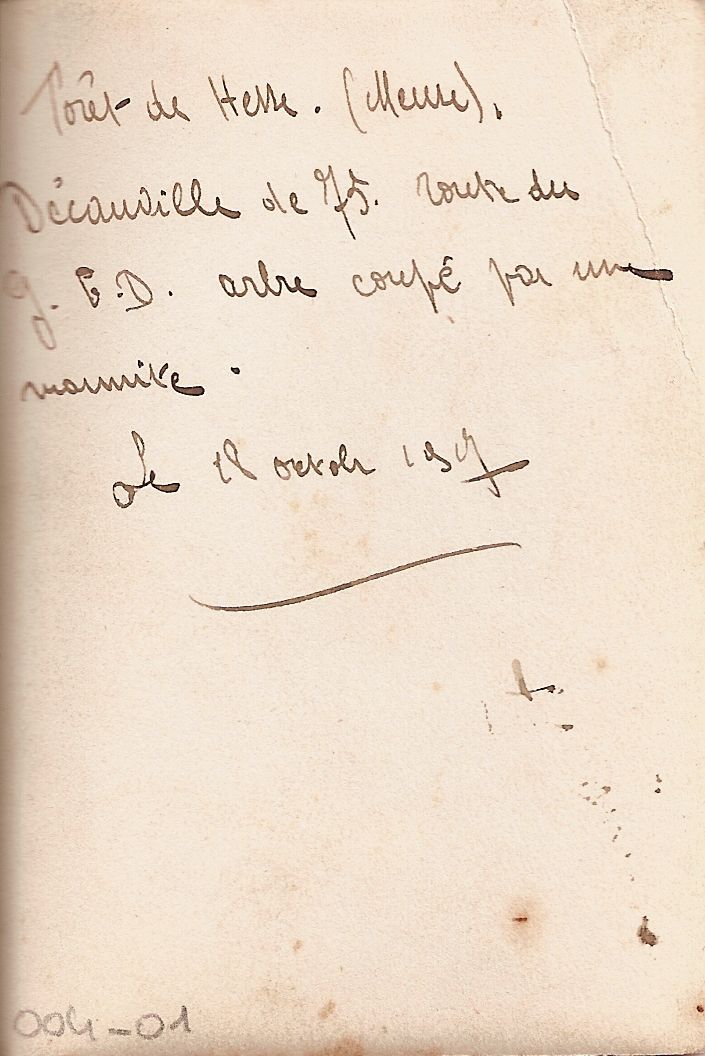 Forêt de Hesse. (Meuse).
Décauville de 75. route du
G. B. D. arbre coupé par une
marmite.
Le 18 octobre 1917
004-01